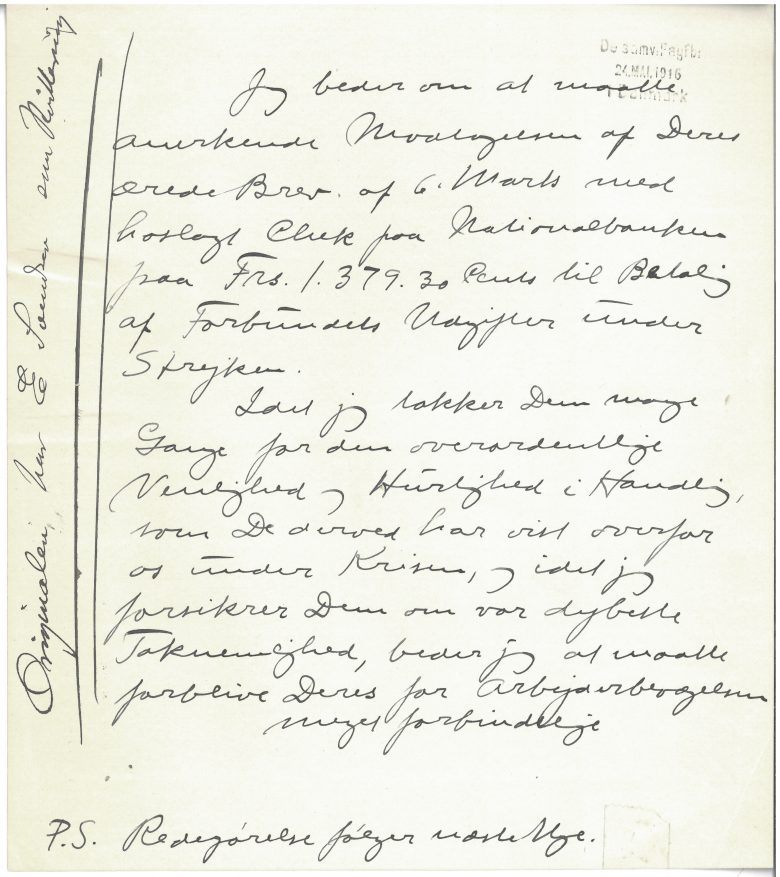 De samv. Fagfb.
24. MAJ. 1916
i Danmark
Jeg beder om at maatte
anerkende Modtagelsen af Deres
ærede Brev. af 6. Marts med
hoslagt Chek paa Nationalbanken
paa Frs. 1.379.30 Cents til Betaling
af Forbundets Udgifter under
Strejken.
Idet jeg takker Dem mange
Gange for den overordentlige
Venlighed og Hurtighed i Handling,
som De derved har vist overfor
os under Krisen, og idet jeg
forsikrer Dem om vor dybeste
Taknemlighed, beder jeg at maatte
forblive Deres for Arbejderbevægelsen
meget forbindelige
P.S. Redegörelse fölger næste Uge.
Originalen har som Kvittering